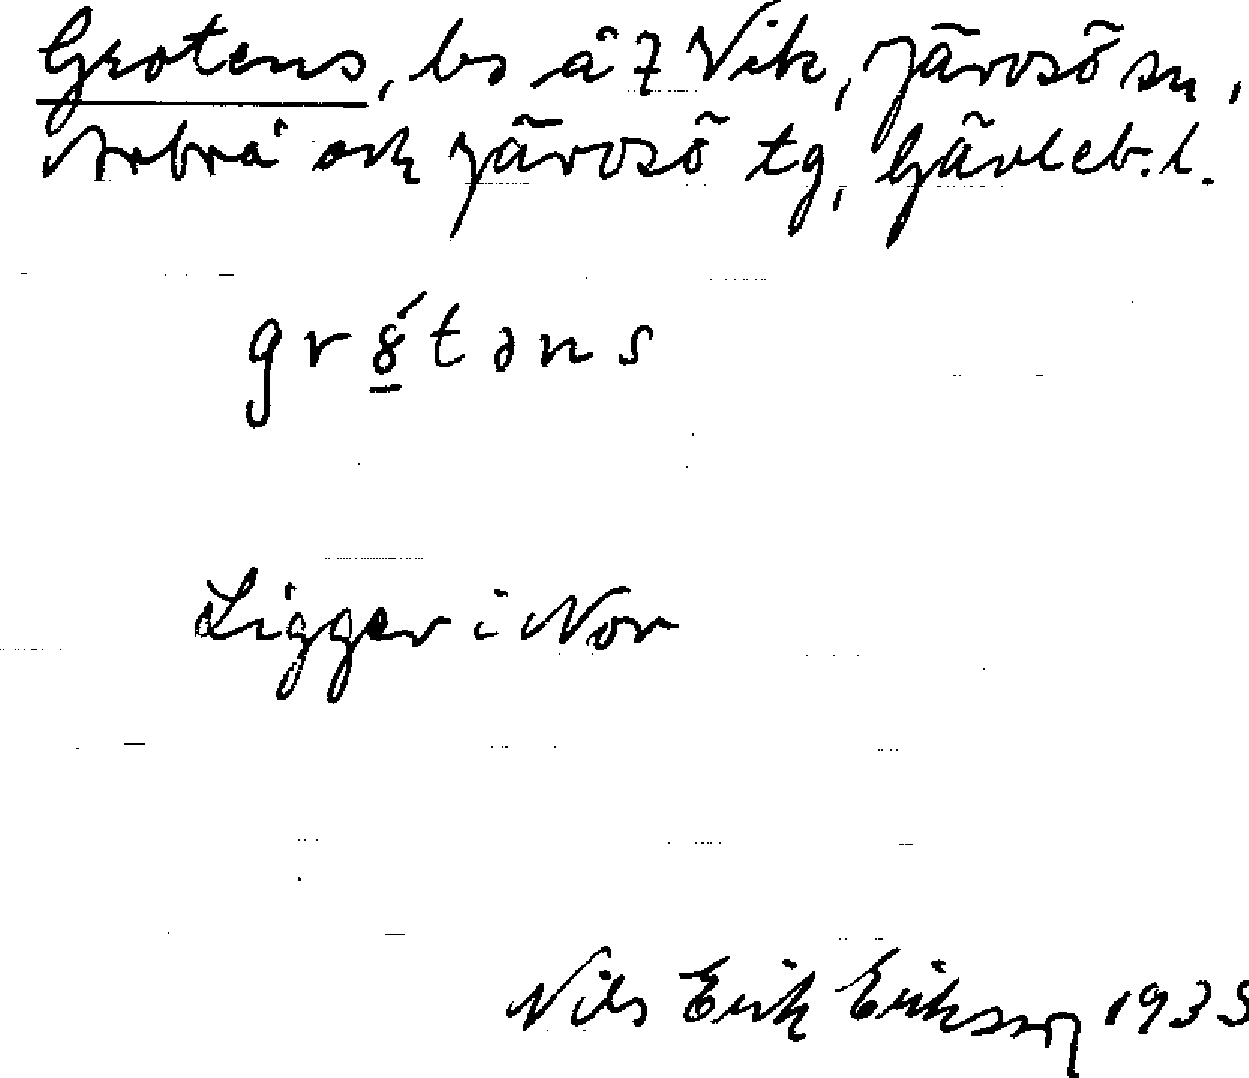 Grotens, bs å 7 Vik, Järvsö sn,
Arbrå och Järvsö tg, Gävleb. l.
Ligger i Nor
Nils Erik Eriksson 1935